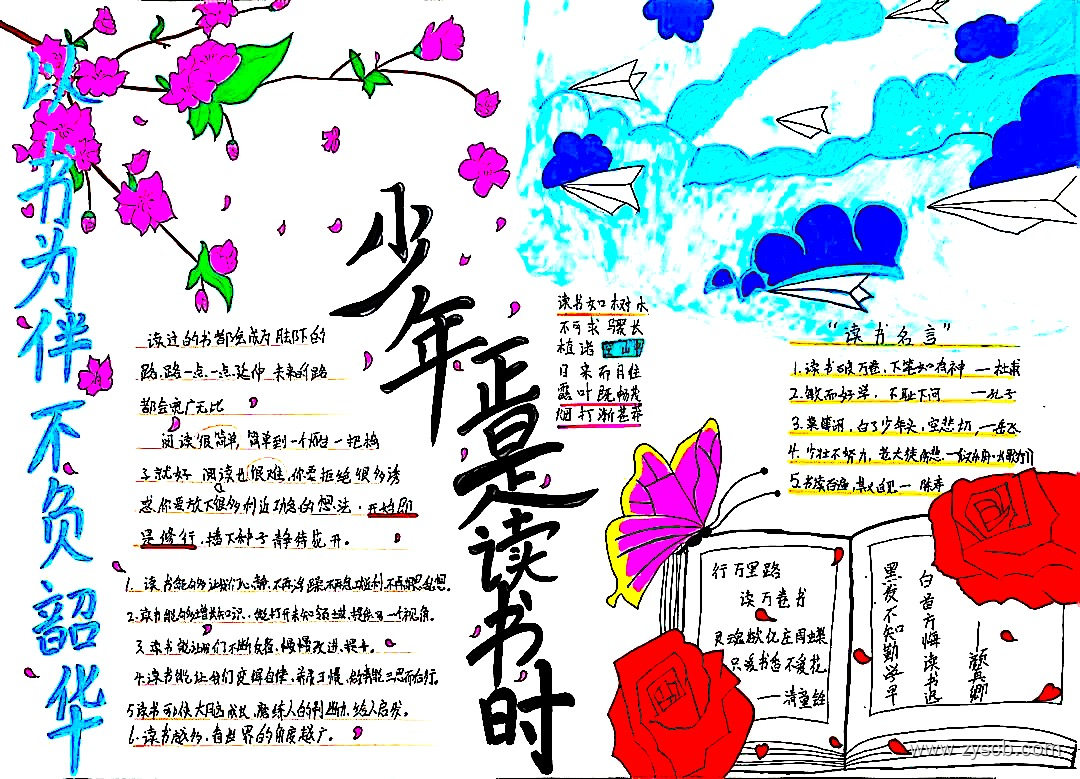 以书为伴 不负韶华
少年正是读书时
读过的书都会成为脚下的
路,路一点一点延伸 未来的路
都会宽广无比
阅读很简单,简单到一个人 一把椅
子就好 阅读也很难,你要拒绝很多诱
惑,你要放下很多利益功名的想法,开始即
是修行,播下种子静待花开。
2.读书能够增长知识,
3.读书能让我们不断反省,慢慢改进,提升。
4.读书能让我们变得自律,养成习惯,做事能三思而后行。
5读书可使大脑成长,磨练人的判断力,给人启发。
6.读书越多,看世界的角度越广。
读书如树木
不可求骤长
植诸空山中
日来而月往
露叶既畅茂
烟打渐苍莽
“读书名言”
1.读书破万卷,下笔如有神 —杜甫
2.敏而好学,不耻下问 —孔子
3.莫等闲,白了少年头,空悲切,—岳飞
4.少壮不努力,老大徒伤悲—汉乐府·长歌行
5.书读百遍,其义自见— 陈寿
行万里路
读万卷书
只爱书香不爱花
黑发不知勤学早
白首方悔读书迟
—颜真卿
www.zyscb.com